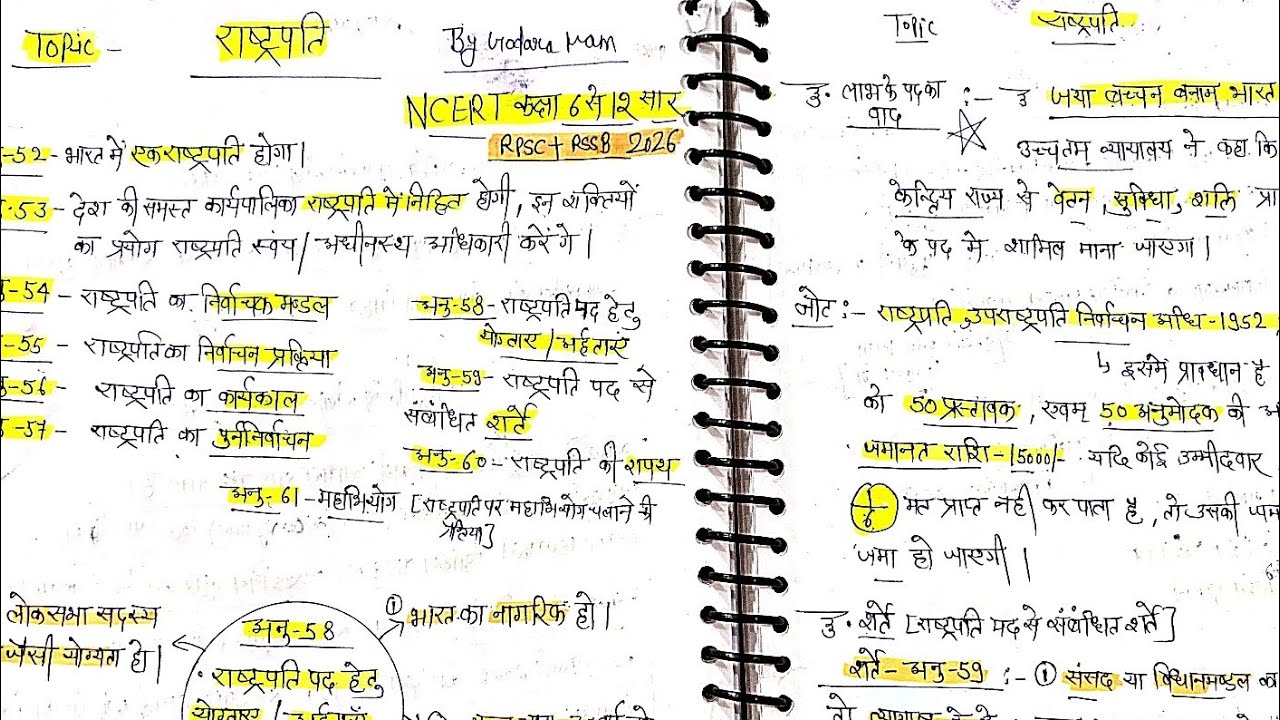 Topic - राष्ट्रपति By Godara Mam
NCERT कक्षा 6 से 12 सार
RPSC + RSSB 2026
-52 - भारत में एक राष्ट्रपति होगा।
-53 - देश की समस्त कार्यपालिका राष्ट्रपति में निहित होगी, इन शक्तियों
का प्रयोग राष्ट्रपति स्वंय / अधीनस्थ अधिकारी करेंगे।
-54 - राष्ट्रपति का निर्वाचक मण्डल
-55 - राष्ट्रपति का निर्वाचन प्रक्रिया
-56 - राष्ट्रपति का कार्यकाल
-57 - राष्ट्रपति का पुर्ननिर्वाचन
अनु-58 - राष्ट्रपति पद हेतु
योग्यताएं / अर्हताएं
अनु-59 - राष्ट्रपति पद से
संबंधित शर्ते
अनु-60 - राष्ट्रपति की शपथ
अनु-61 - महाभियोग [राष्ट्रपति पर महाभियोग चलाने की
प्रक्रिया]
लोकसभा सदस्य
जैसी योग्यता हो।
अनु-58
राष्ट्रपति पद हेतु
① भारत का नागरिक हो।
Topic राष्ट्रपति
3. लाभ के पद का
वाद
:- 3 जया बच्चन बनाम भारत
उच्चतम न्यायालय ने कहा कि
केन्द्रिय राज्य से वेतन, सुविधा, शक्ति प्रा
के पद में शामिल माना जाएगा।
नोट :- राष्ट्रपति, उपराष्ट्रपति निर्वाचन अधि-1952,
↳ इसमें प्रावधान है
को 50 प्रस्तावक, एवम 50 अनुमोदक की
जमानत राशि - 15000/- यदि कोई उम्मीदवार
1/6 मत प्राप्त नहीं कर पाता है, तो उसकी
जमा हो जाएगी।
3. शर्ते [राष्ट्रपति पद से संबंधित शर्ते]
शर्ते - अनु-59 :- ① संसद या विधानमण्डल का